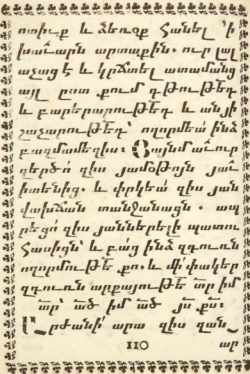 ոտիւք և ձեռօք հանել 'ի
խաւարն արտաքին. ուր լալ
աչաց է և կրճտել ատամանց
այլ ըստ քում գթութեդ
և բարերարութեդ և անյի
շաչարութեդ՝ ողորմեա ինձ
բազմամեղիս: Յայնմ աւուր
զերծո զիս յամօթոյն յաւի
տենից. և փրկեա զիս յան
վախճան տանջանացն. ապ
րեցո զիս յաններելի պատու
հասիցն՝ և բաց ինձ զդուռն
ողորմութե քո. և մի՛ փակեր
զդուռն արքայութե տր իմ
տր՝ ած իմ ած յս քս:
Արժանի արա զիս զան
110
տր